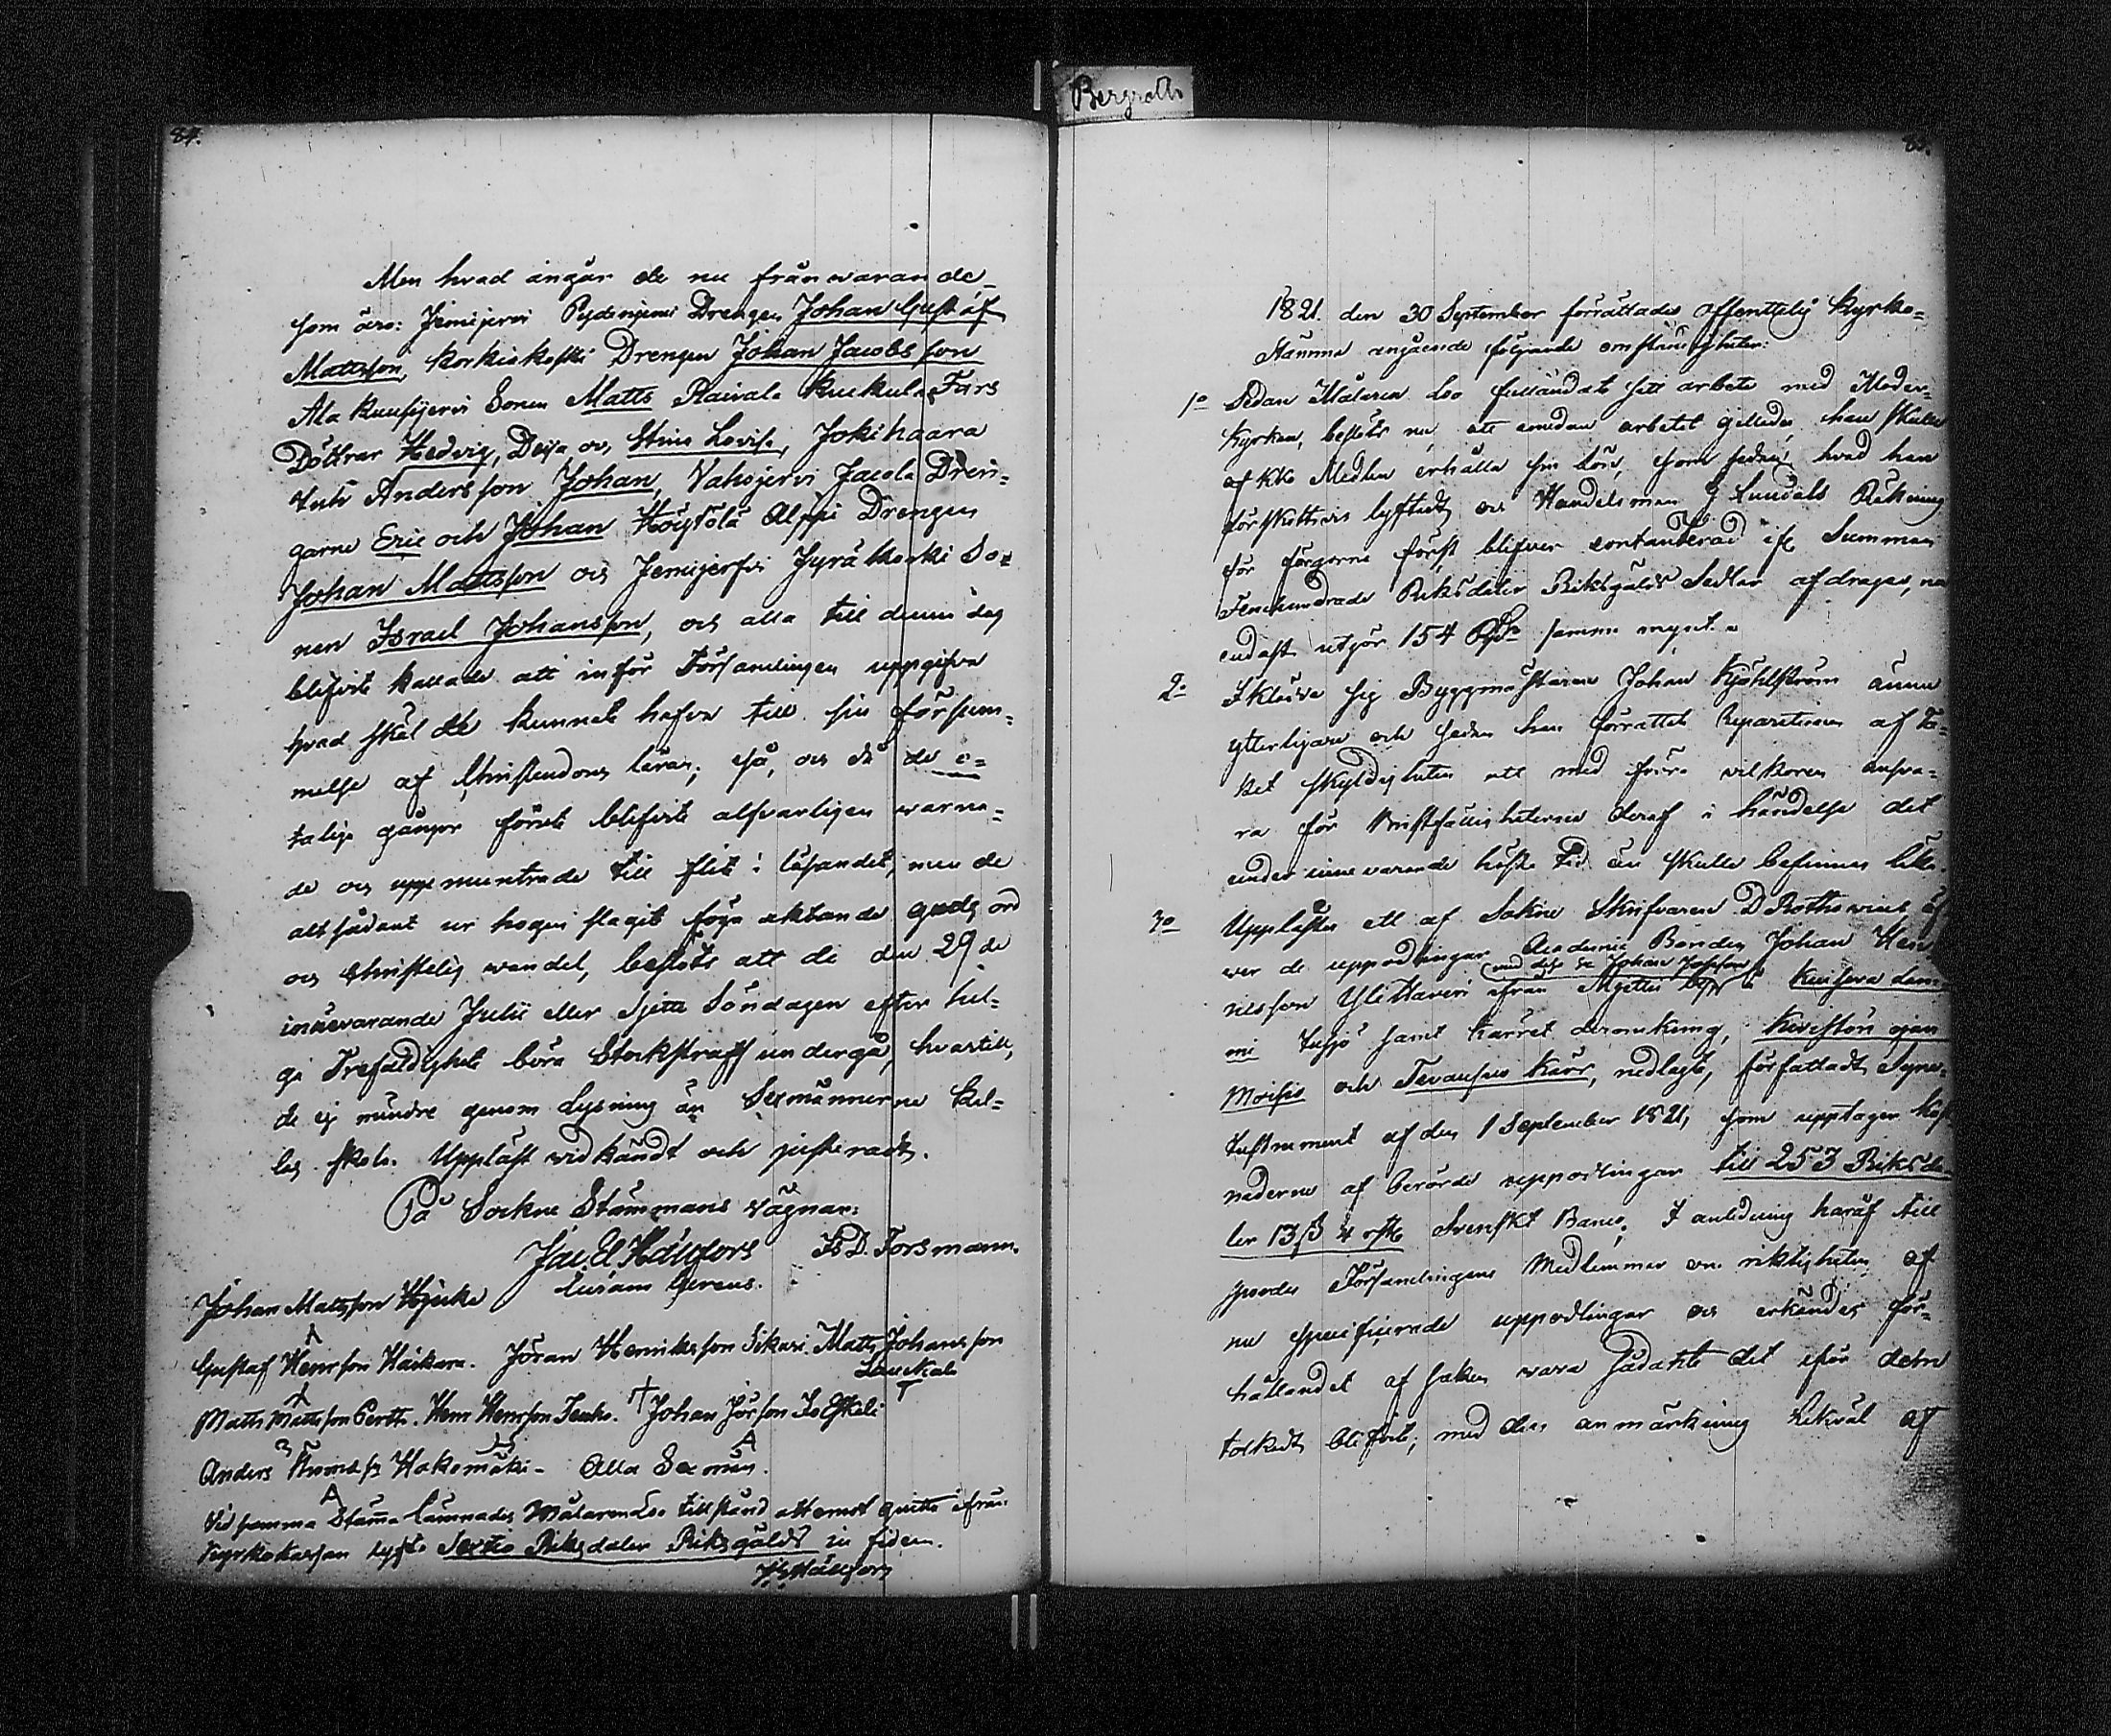 Bergroth
84.
Men hvad angår de nu frånwarande
som äro: Jemijervi Pydenjemi Drengen Johan Gustaf
Mattsson, Korkiakoski Drengen Johan Jacobsson
Ala Kuusijervi Sonen Matts Raivala Kuckula Fars
Döttrar Hedvig, Deija oc, Stina Lovisa, Jokihaara
Anders son Johan, Vahojervi Jacola Dren-
garne Eric och Johan Höystölä Alppi Drengen
Johan Mattsson och Jemijerfvi Jyräkoski So-
nen Israel Johansson, och alla till denna dag
blifvit kallade att inför Församlingen uppgifva
hvad skäl de kunnat hafva till sin försum-
melse af Christendoms läran; så, och då de o-
talige gånger förut blifvit alfvarligen warna-
de och uppmuntrade till flit i läsandet, men de
alt sådant ur hogen slagit föga aktande guds ord
och Christelig wandel, beslöts att de den 29de
innevarande Julii eller Sjette Söndagen efter hel-
ga Trefaldighet böra Stockstraff undergå, hvartill
de ej mindre genom Lysning än Sexmännerne kal-
las skola. Uppläst vidkändt och justeradt.
På Sockne Stämmans vägnar:
Jac El Hällfors Is D. Forsmann.
Johan Mattsson Hjicko
Gustaf Henrsson Häikara. Jöran Henriksson Sikuri. Matts Johansson
Matts Mattsson Pertti. Henr Henrsson Jenho. Johan Jörsson
Anders Hakomäki - Alla Sexmän.
Vid samma Stämma lämnades Målaren Loo tillstånd att emot quitto ifrån
Kyrkokassan lyfta Sextio Riksdaler Riksgälds in fidem.
Hällfors
85.
1821. den 30 September förrättades offenttelig Kyrko-
Stämma angående följande omständigheter:
1o Sedan Målaren Loo fulländat sitt arbete med Moder-
Kyrkan, beslöts nu, att emedan arbetet gillades, han skulle
af Kko Medlen erhålla sin lön, som sedan hvad han
förskottsvis lyftadt och Handelsman J Lundals Räkning
för färgorne först blifver contanterad ifr Summan
Femhundrade Riksdaler Riksgälds Sedlar afdrages, nu
endast utgör 154 Rdr samma mynt.
2o Iklädde sig Byggmästaren Johan Kjählström ännu
ytterligare och sedan han förrättat Reparationen af ta-
ket skyldigheten att med förra vilkoren ansva-
ra för bristfälligheterne deraf i händelse det
under innevarande höste tid än skulle befinnas läka.
3o Upplästes ett af Sokne Skrifvaren D Rothovius öf
ver de uppodlingar Academie Bonden Johan Hen
ricsson Yli Haveri med dess Sn Johan Johsson ifrån Myttäri by i Kuusera lam-
mi Insjö samt Kärret deromkring, Kiviston ojan
Moisio och Tevansuo Kärr, nedlagt, författadt Syne-
Instrument af den 1 September 1821, som upptager kost
naderne af berörde uppodlingar till 253 Riksda-
ler 13 ß 4 rst Svenskt Banco. I anledning häraf till
spordes Församlingens Medlemmar om riktigheten af
nu specificerade uppodlingar och erkändes för-
hållandet af saken vara sådant det ifrån dem
torkadt blifvit; med den anmärkning likväl af